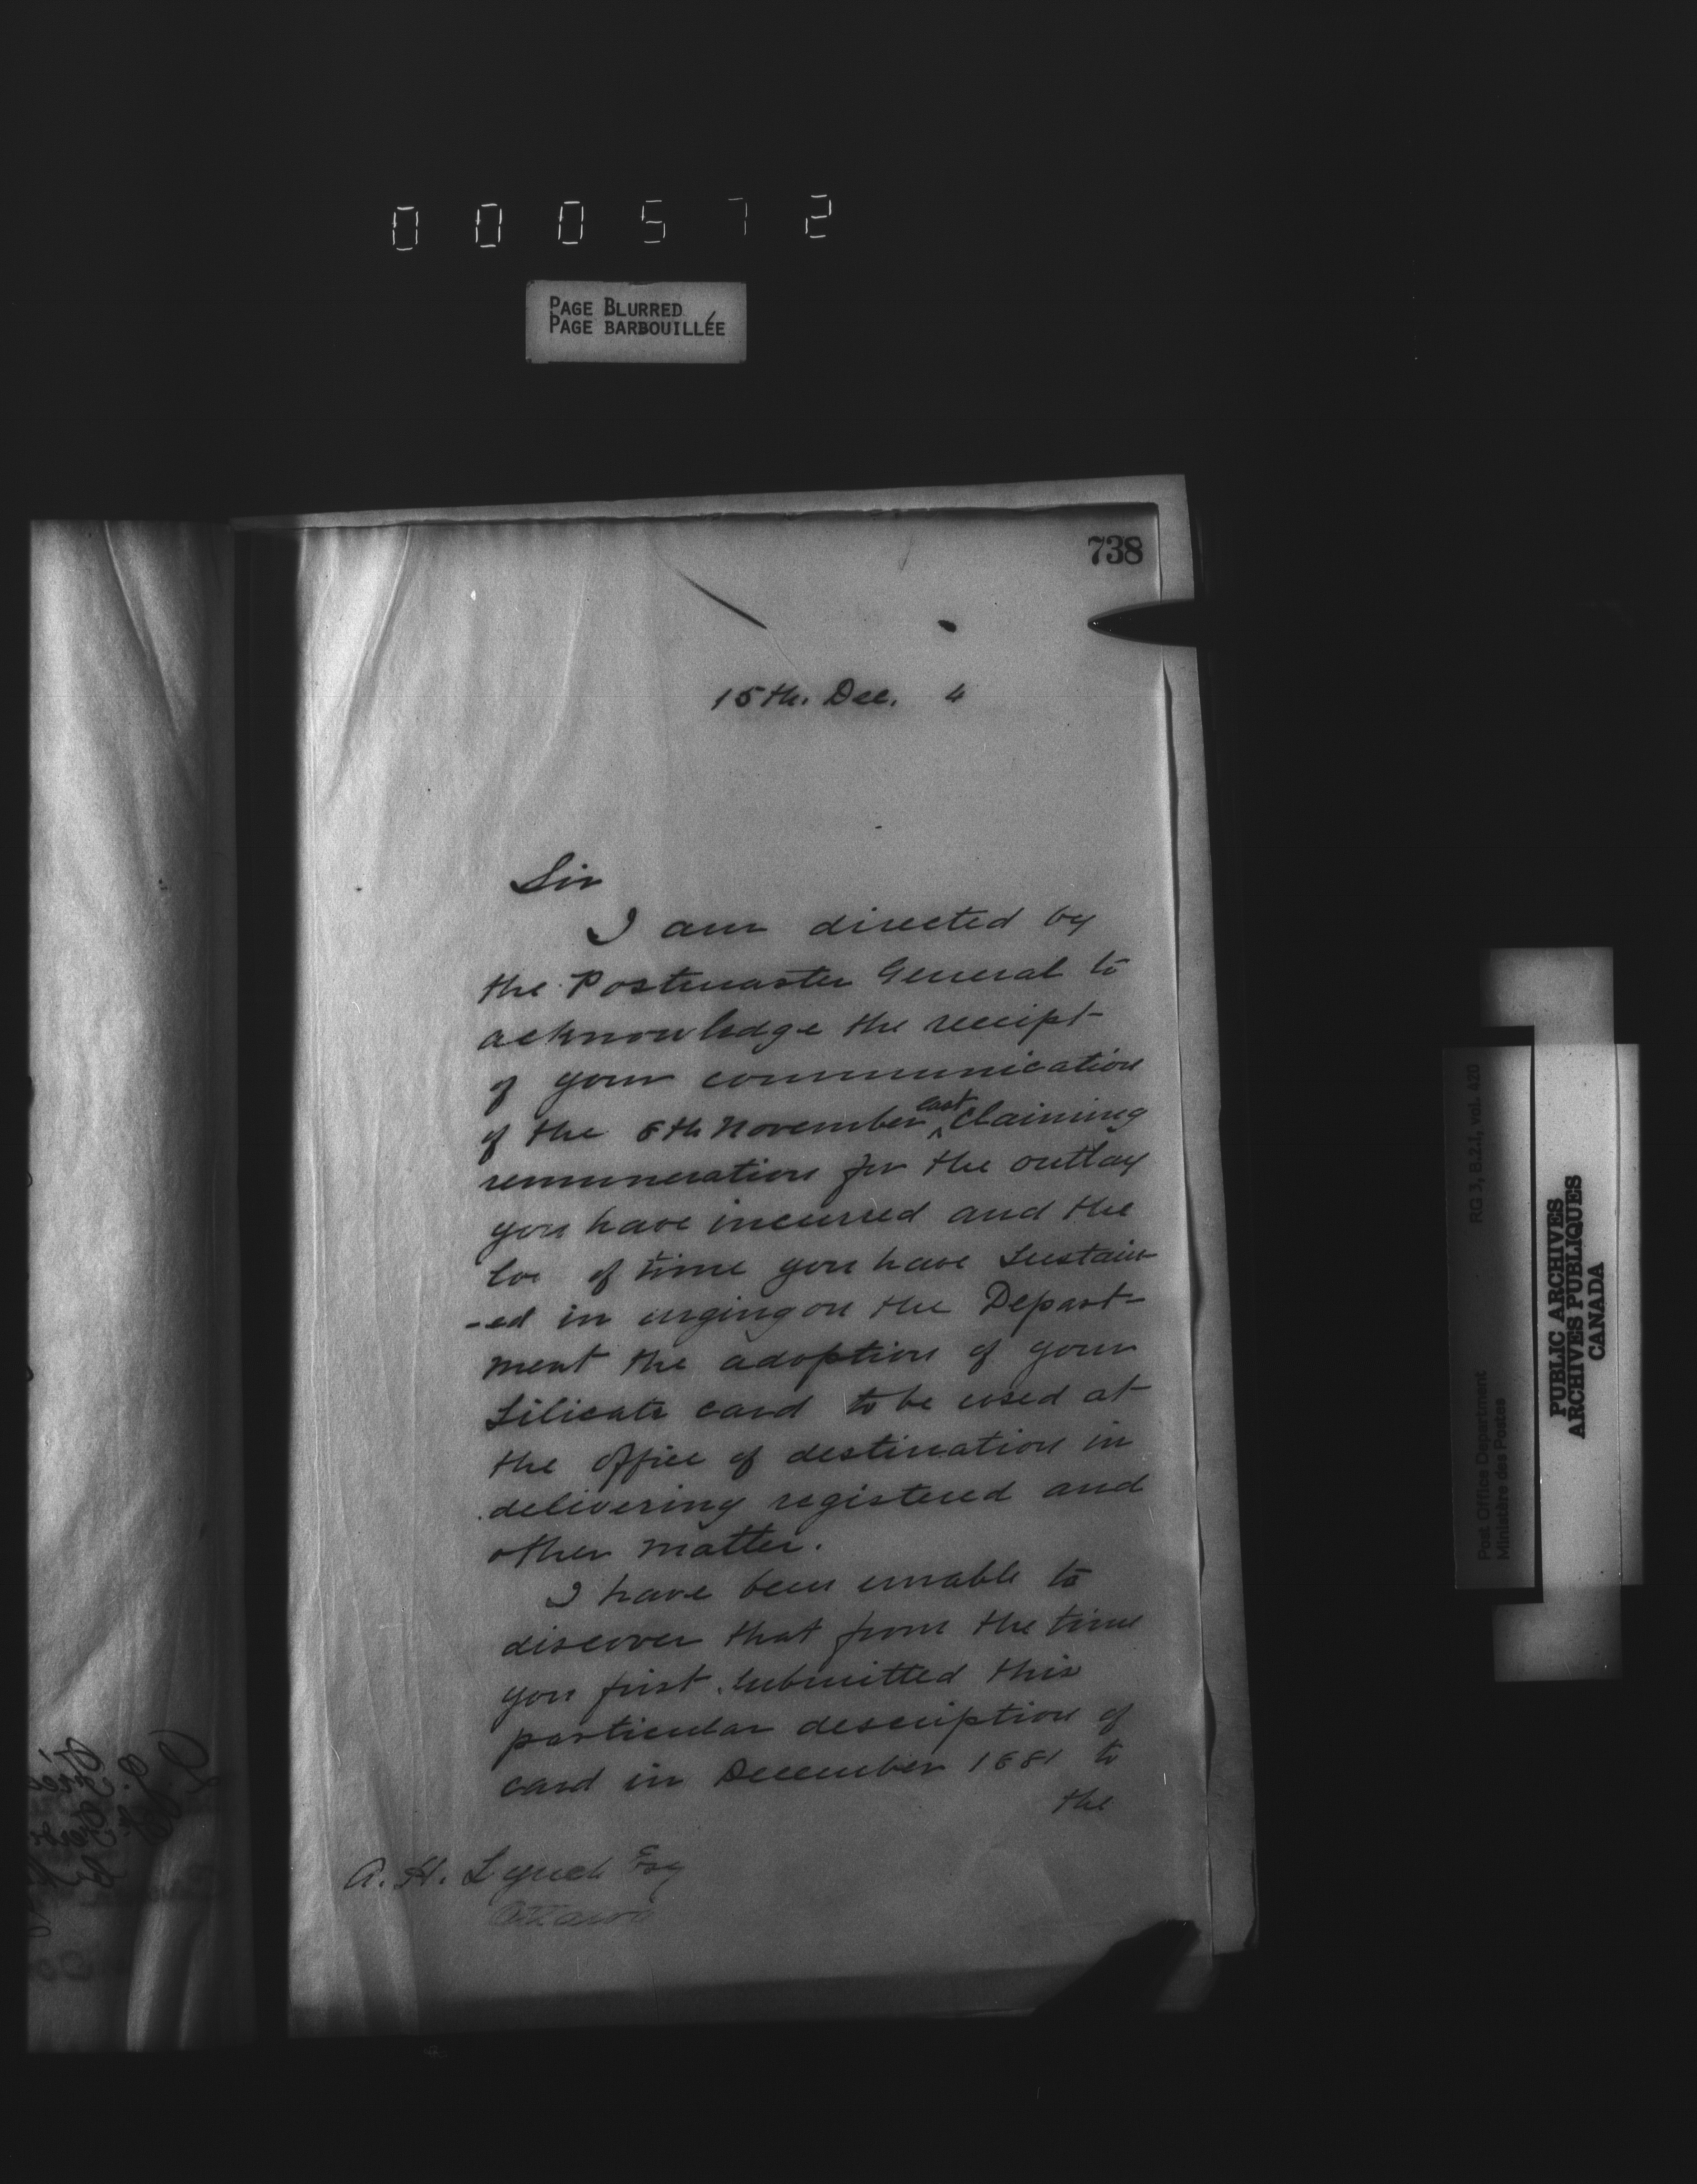 000572
PAGE BLURRED
PAGE BARBOUILLÉE
738
15th. Dec. 4
Sir
I am directed by
the Postmaster General to
acknowledge the receipt
of your communication
of the 8th November last claiming
remuneration for the outlay
you have incurred and the
los of time you have sustain
-ed in urging on the Depart-
ment the adoption of your
Silicate card to be used at
the office of destination in
delivering registered and
other matter.
I have been unable to
discover that from the time
you first submitted this
particular description of
card in December 1881 to
the
A. H. Lynch Esq
Ottawa
RG 3, B.2.1, vol. 420
Post Office Department
Ministère des Postes
PUBLIC ARCHIVES
ARCHIVES PUBLIQUES
CANADA